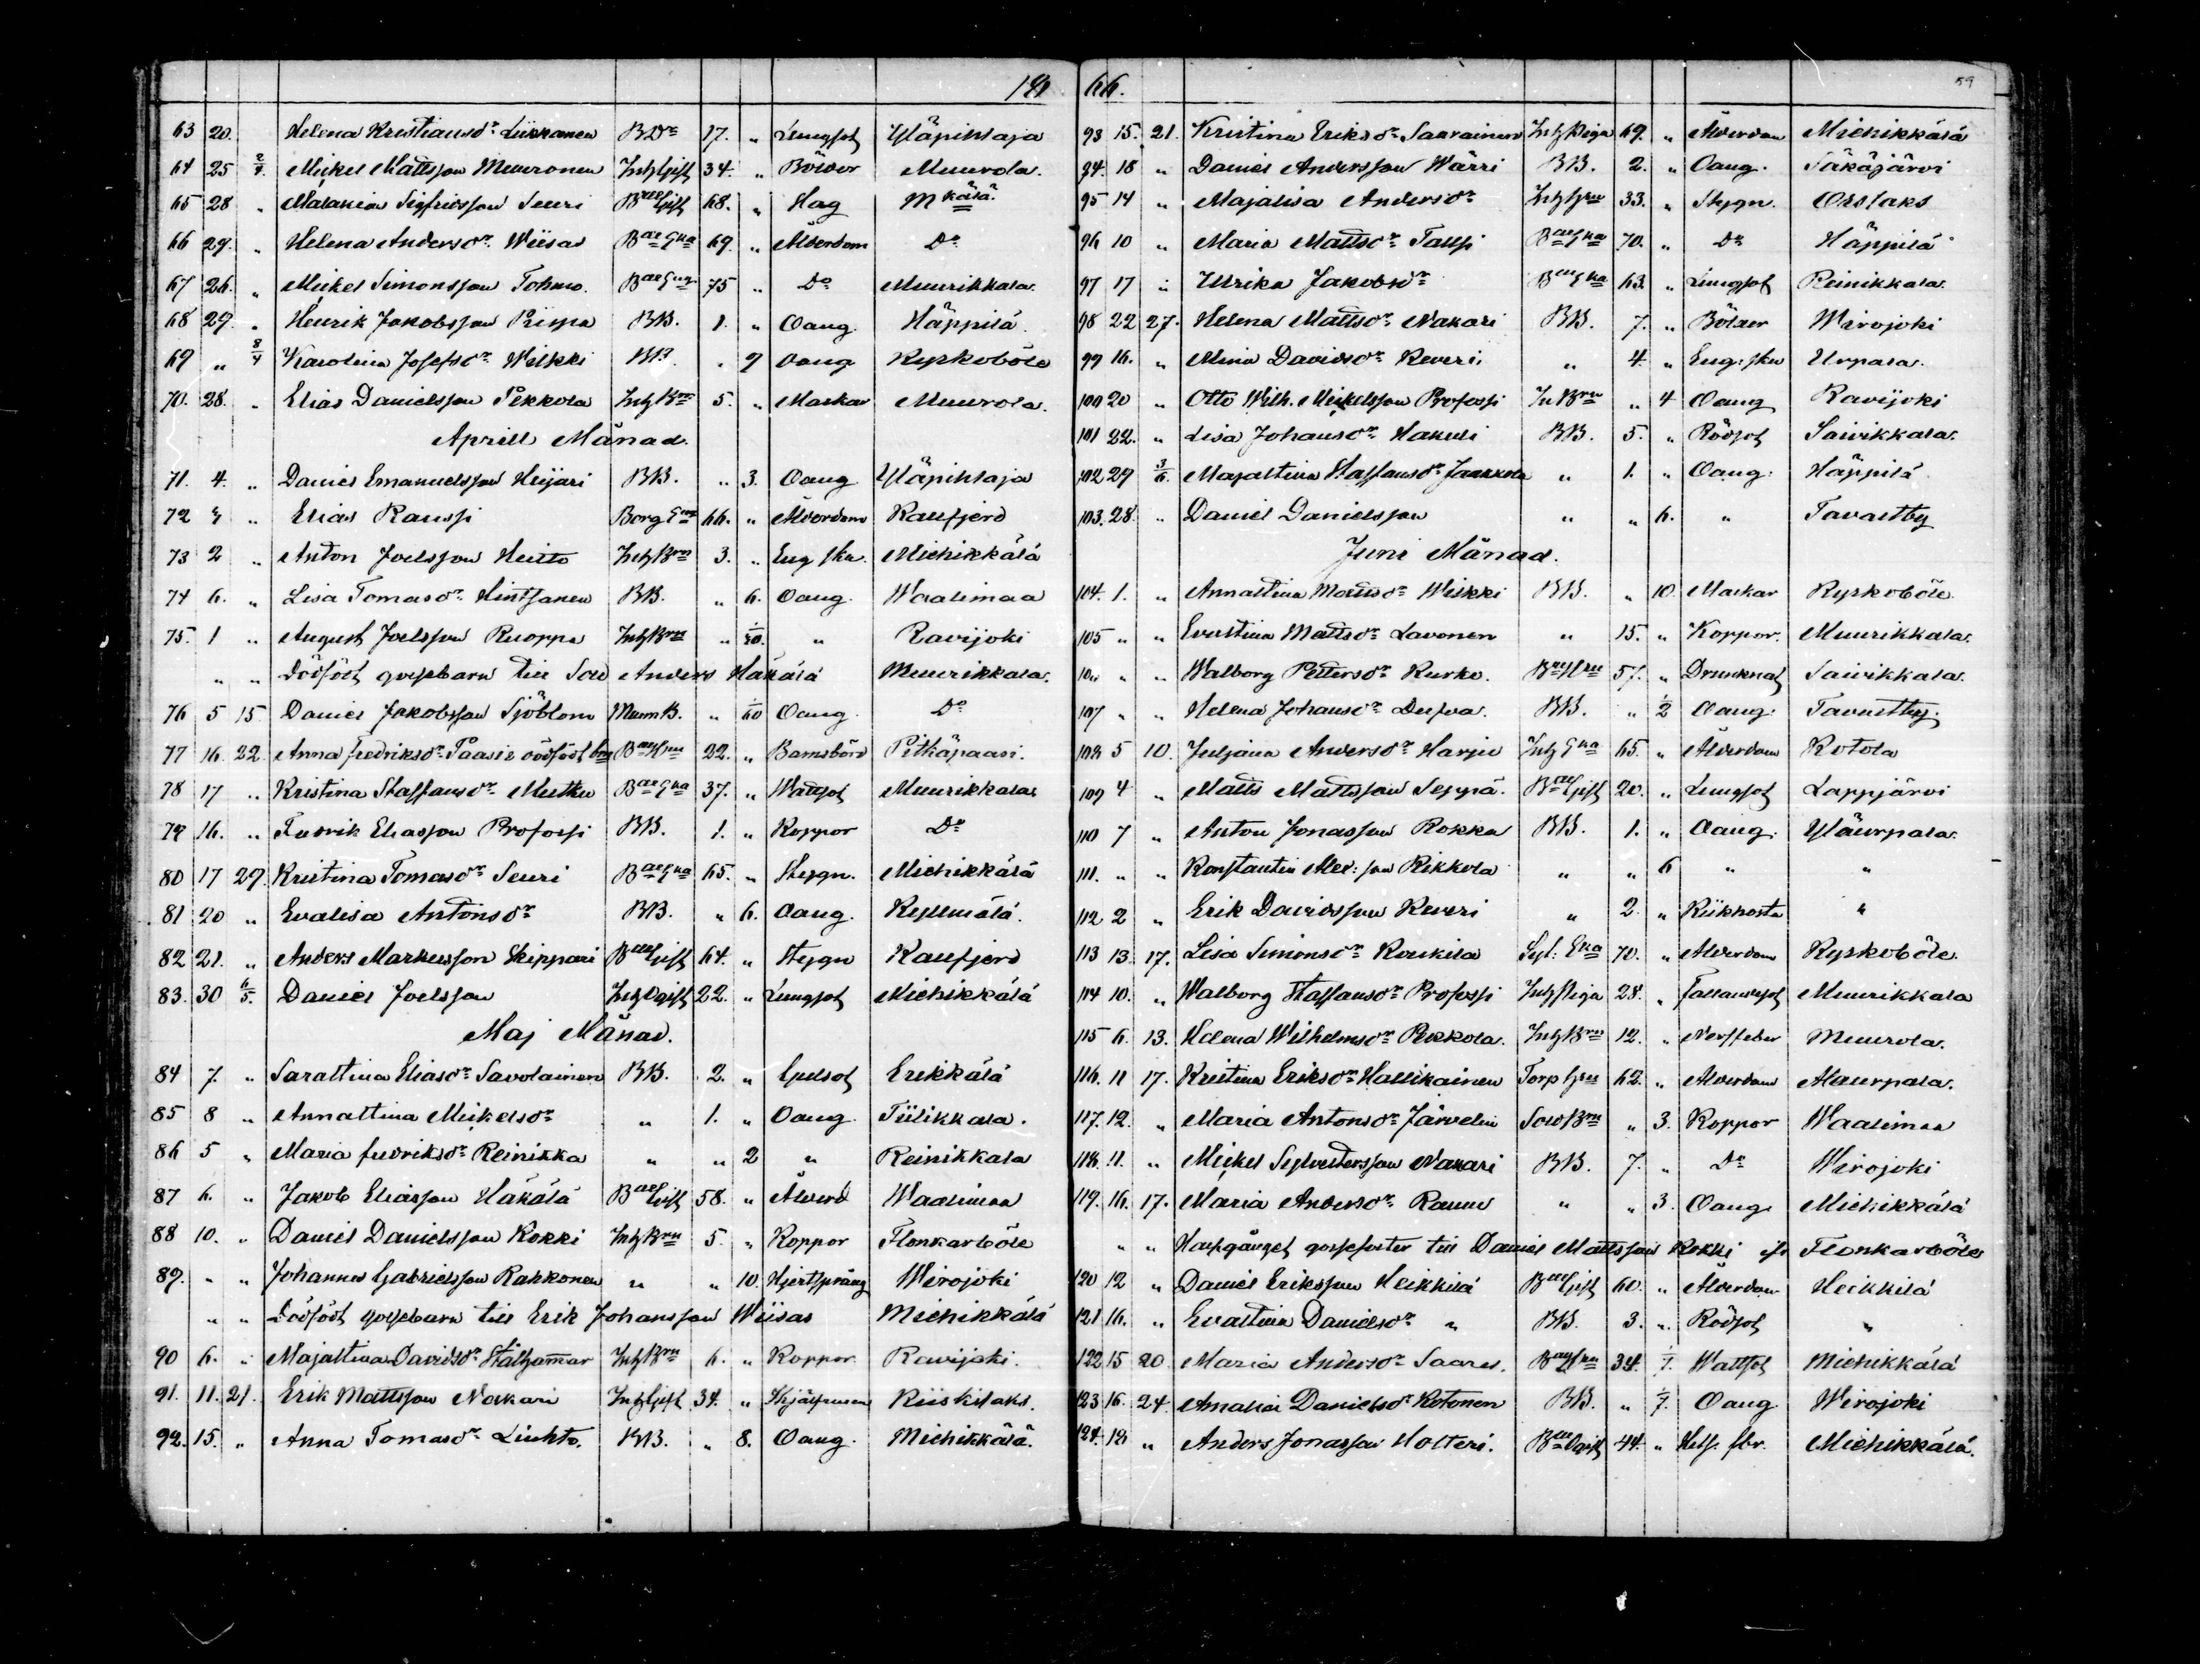 18 66.
59
63 20. Helena Kristiansdr Liikkanen BDr 17. " Lungsot Yläpihlaja
64 25 2/4 Mickel Mattsson Muuronen InhGift 34. " Bölder Muurola.
65 28 " Malakias Sigfridsson Seuri BdeGift 68. " Hag Mkälä.
66 29. " Helena Andersdr Wiisas BdeEnka 69. " Ålderdom Do
67 26. " Mickel Simonsson Tohmo. BdeEnkg 75 " Do Muurikkala.
68 29. " Henrik Jakobsson Piispa BB. 1. " Oang. Häppilä
69 " 8/4 Karolina Josefsdr Wilkki BB. " 9 Oang Kyrkoböle
70. 28. " Elias Danielsson Pekkola InhBrn 5. " Maskar Muurola.
Aprill Månad.
71. 4. " Daniel Emanuelsson Heijari BB. " 3. Oang Yläpihlaja
72 4 " Elias Raussi Borg Enkg 66. " Ålderdom Kalfjerd
73 2 " Anton Joelsson Heitto InhBrn 3. " Eng sku Miehikkälä
74 6. " Lisa Tomasdr Hintsanen BB. " 6. Oang. Waalimaa
75. 1 " August Joelsson Ruoppa InhBrn " 1/30. " Ravijoki
" " Dödfödt gossebarn till Sold Anders Häkälä Muurikkala.
76 5 15 Daniel Jakobsson Sjöblom MurmB. " 1/60 Oang. Do
77 16. 22. Anna Fredriksdr Paasi & dödfödt brn BdeHru 22. " Barnsbörd Pitkäpaasi.
78 17 " Kristina Staffansdr Mutku BdeEnka 37. " Wattsot Muurikkala
79 16. " Fredrik Eliasson Profossi BB. 1. " Koppor Do
80 17 29. Kristina Tomasdr Seuri BdeEnka 65. " Stygn. Miehikkälä
81 20 " Evalisa Antonsdr BB. " 6. Oang. Kyllmälä.
82 21. " Anders Markusson Skippari BdeGift 64. " Stygn Kalfjerd
83. 30 6/5. Daniel Joelsson InhOgift 22. " Lungsot Miehikkälä
Maj Månad.
84 7. " Sarastina Eliasdr Savolainen BB. 2. " Gulsot Erikkälä
85 8 " Annastina Mickelsdr " 1. " Oang Tiilikkala.
86 5 " Maria Fredriksdr Reinikka " " 2 " Reinikkala
87 6. " Jakob Eliasson Häkälä BdeGift 58. " Ålderd Waalimaa
88 10. " Daniel Danielsson Kokki InhBrn 5. " Koppor Flonkarböle
89. " " Johannes Gabrielsson Rakkonen " " 10. Hjertsprång Wirojoki
" " Dödfödt gossebarn till Erik Johansson Wiisas Miehikkälä
90 6. " Majastina Davidsdr Stålhammar InhBrn 6. " Koppor Ravijoki.
91. 11. 21. Erik Mattsson Nakari InhGift 34. " Riiskilaks.
92. 15. " Anna Tomasdr Liuhto. BB. " 8. Oang. Miehikkälä.
93 15. 21. Kristina Eriksdr Saarainen InhPiga 69. " Ålderdom Miehikkälä
94. 18 " Daniel Andersson Wärri BB. 2. " Oang. Säkäjärvi
95 14 " Majalisa Andersdr InhHru 33. " Stygn. Orslaks
96 10 " Maria Mattsdr Tallsi BdeEnka 70. " Do Häppilä
97 17 " Ulrika Jakobsdr BdeEnka 63. " Lungsot Reinikkala.
98 22 27. Helena Mattsdr Nakari BB. 7. " Bölder Wirojoki
99 16. " Mina Davidsdr Keveri. " 4. " Eng: sku Urpala.
100 20 " Otto Wilh. Mickelsson Profossi InBrn " 4 Oang Ravijoki
101 22. " Lisa Johansdr Hakuli BB. 5. " Rödsot Saivikkala.
102 29 3/6. Majastina Staffansdr Jaakkola " 1. " Oang. Häppilä
103. 28. " Daniel Danielsson " " 6. " Tavastby
Juni Månad.
104. 1. " Annastina Mattsdr Wilkki BB. " 10. Maskar Kyrkoböle.
105 " " Evastina Mattsdr Lavonen " 15. " Koppor. Muurikkala.
106 " " Walborg Pettersdr Kurko. BdeHru 57. " Drunknat Saivikkala.
107 " " Helena Johansdr Dufva. BB. " 1/2 Oang. Tavastby.
108 5 10. Juljana Andersdr Harju InhEnka 65. " Ålderdom Kotola
109 4 " Matts Mattsson Seppä. BdeGift 20. " Lungsot Lappjärvi
110 7 " Anton Jonasson Rokka BB. 1. " Oang. Yläurpala.
111. " " Konstantin Alex: son Kikkola " " 6 " "
112 2 " Erik Davidsson Keveri " 2. " Kikhosta "
113 13. 17. Lisa Simonsdr Koukila Syt: Enka 70. " Ålderdom Kyrkoböle.
114 10. " Walborg Staffansdr Profossi InhPiga 28. " Fallandsot Muurikkala
115 6. 13. Helena Wilhelmsdr Pekkola. InhBrn 12. " Nerffeber Muurola.
116. 11 17. Kristina Eriksdr Hallikainen Torp Hru 62. " Ålderdom Alaurpala.
117. 12. " Maria Antonsdr Järvelin SoldBrn " 3. Koppor Waalimaa
118. 11. " Mickel Sylvestersson Nakari BB. 7. " Do Wirojoki
119. 16. 17. Maria Andersdr Rauw " " 3. Oang. Miehikkälä
" " Halfgånget gossefoster till Daniel Mattsson Kokki ifr Flonkarböle
120 12 " Daniel Eriksson Heikkilä BdeGift 60. " Ålderdom Heikkilä
121 16. " Evastina Danielsdr " BB. 3. " Rödsot "
122 15 20. Maria Andersdr Saares. BdeHru 34. 1/7. Wattsot Miehikkälä
123 16. 24. Amalia Danielsdr Kotonen BB. " 1/7. Oang Wirojoki
124. 18 " Anders Jonasson Holteri. BdeOgift 44. " Hets. fbr. Miehikkälä.